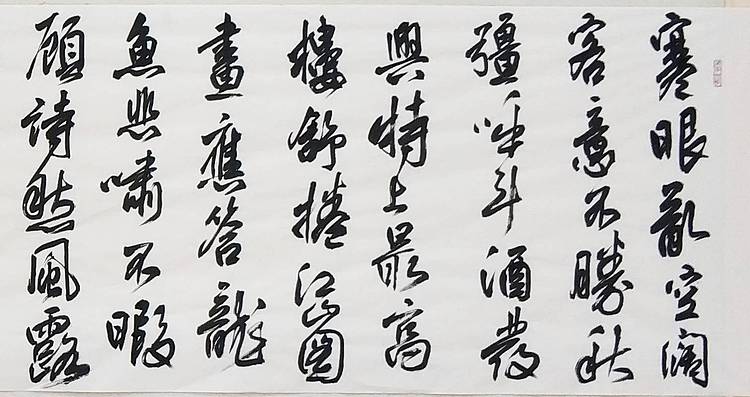 寒眼亂空闊
客意不勝秋
彊呼斗酒發
興特上最高
樓舒捲江山圖
畫應答龍
魚悲嘯不暇
顧詩愁風露